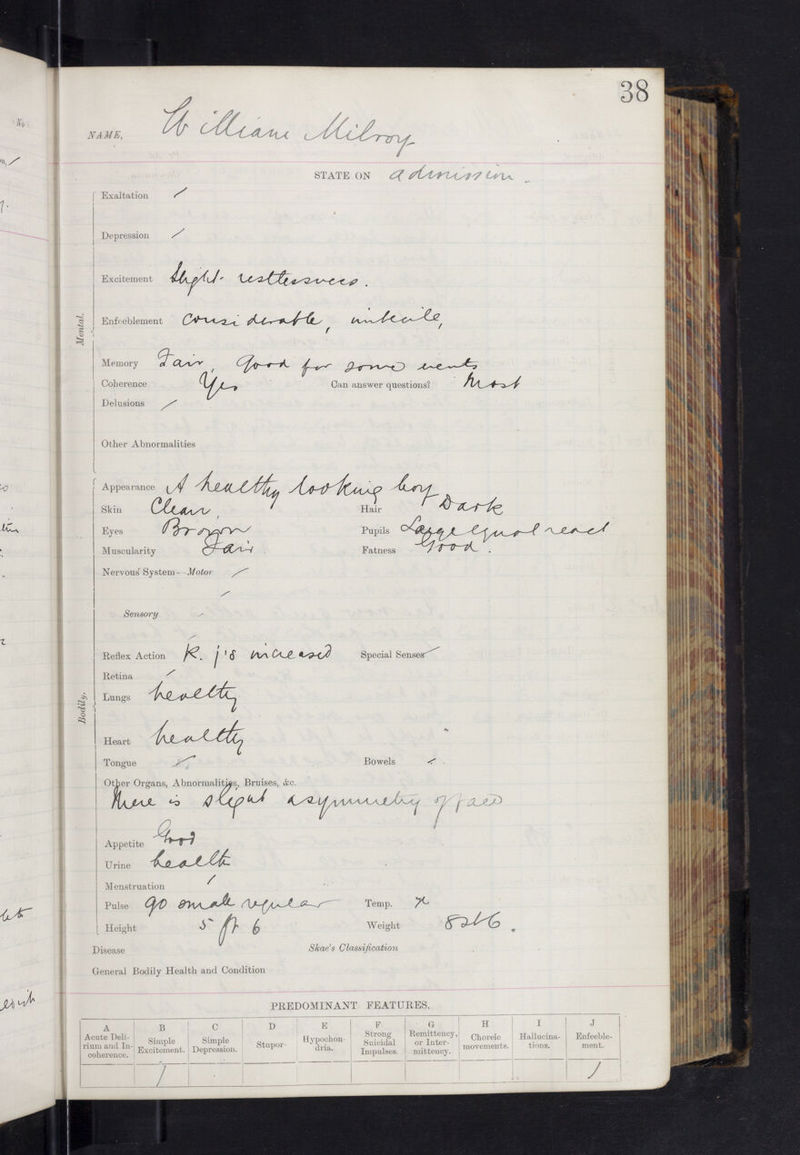 38
NAME, William Milroy
STATE ON admission.
Exaltation /
Depression /
Excitement Slight restlessness.
Mental.
Enfeeblement Considerable, imbecile,
Memory Fair, Good for some events
Coherence Yes Can answer questions? Most
Delusions /
Other Abnormalities
Appearance A healthy looking boy
Skin Clean, Hair Dark
Eyes Brown Pupils Large equal react
Muscularity Fair Fatness Good.
Nervous System- Motor /
Sensory
Reflex Action K. j's increased Special Senses
Retina /
Bodily.
Lungs healthy
Heart healthy
Tongue Bowels
Other Organs, Abnormalities, Bruises, &c.
There is slight asymmetry of face
Appetite Good
Urine health
Menstruation /
Pulse 90 small regular Temp.
Height 5 ft 6 Weight 8st 6.
Disease Skae's Classification
General Bodily Health and Condition
PREDOMINANT FEATURES.
A B C D E F G H I J
Acute Deli-rium and In-coherence. Simple Excitement. Simple Depression. Stupor Hypochon-dria. Strong Suicidal Impulses. Remittency, or Inter-mittency. Choreic movements. Hallucina-tions. Enfeeble-ment.
/ /